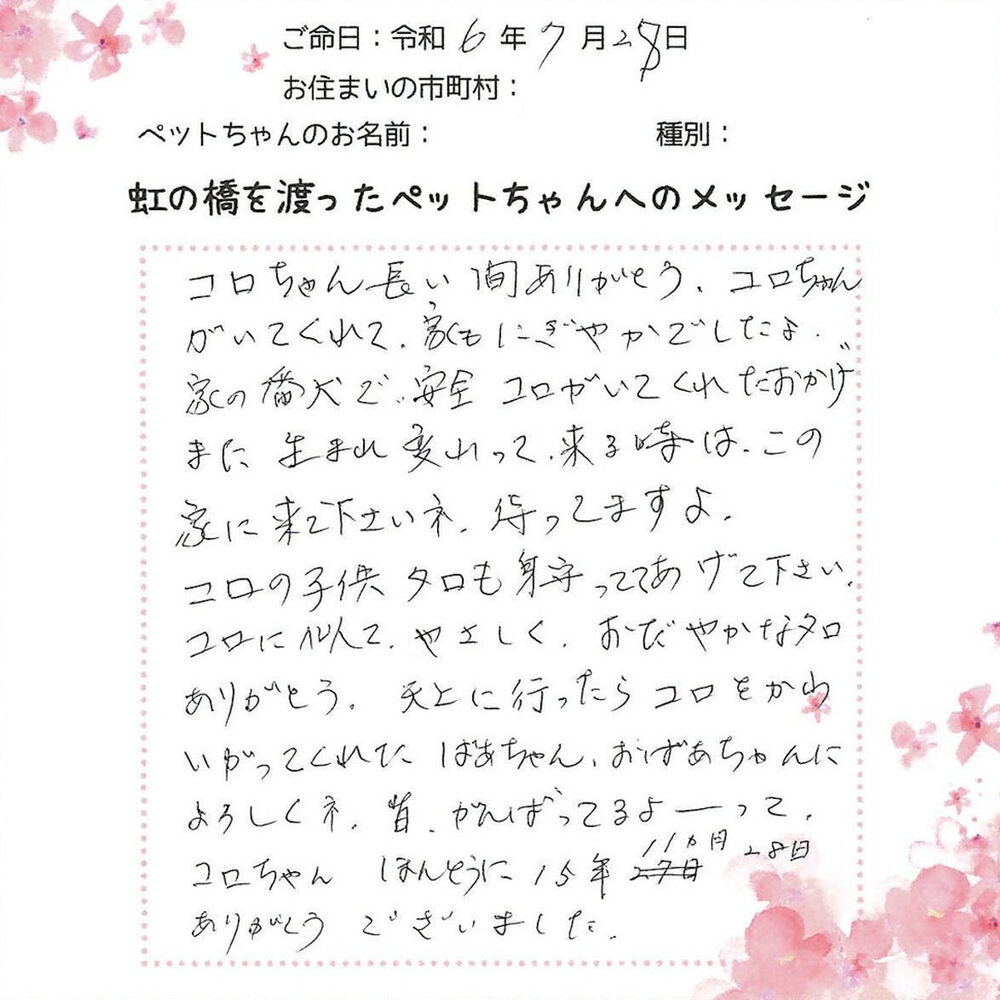 ご命日：令和6年7月28日
お住まいの市町村：
ペットちゃんのお名前： 種別：
虹の橋を渡ったペットちゃんへのメッセージ
コロちゃん長い間ありがとう、コロちゃん
がいてくれて、家もにぎやかでしたよ.
家の番犬で、安全 コロがいてくれたおかげ
また 生まれ変わって、来る時は、この
家に来て下さいネ、待ってますよ.
コロの子供 タロも見守っててあげて下さい.
コロに似て、やさしく、おだやかなタロ
ありがとう. 天上に行ったらコロをかわ
いがってくれてた ばあちゃん、おばあちゃんに
よろしくネ、皆、がんばってるよーって.
コロちゃん ほんとうに 15年 11ヵ月 28日
ありがとう ございました.